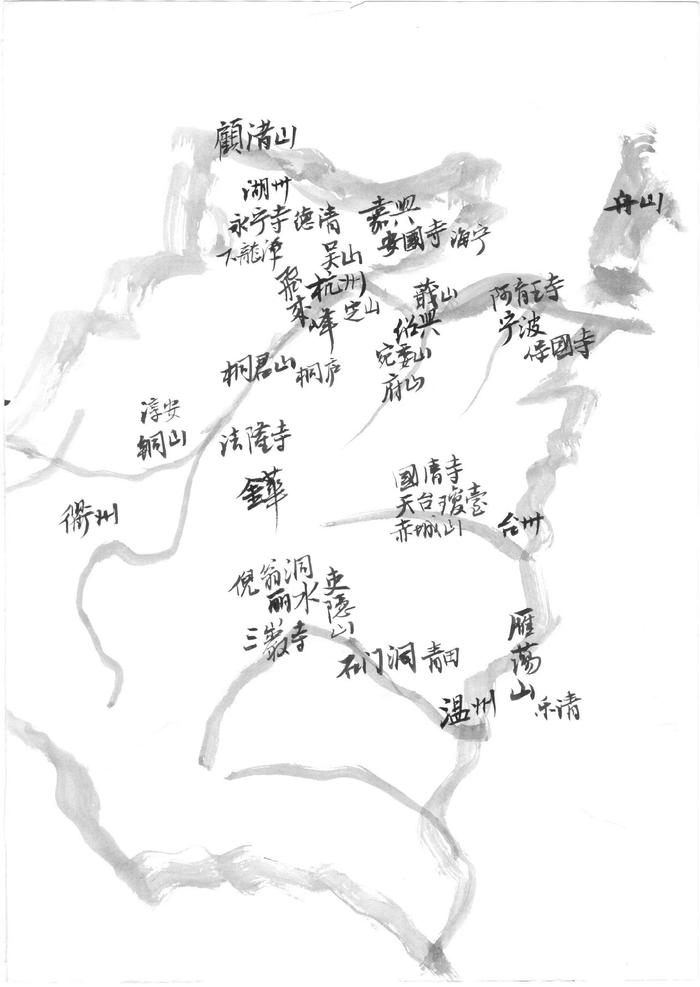 顧渚山
湖州
永宁寺 德清
下龍潭
吴山
嘉興
安國寺 海宁
舟山
飛来峰
杭州
定山
蕺山
绍興
宛委山
府山
阿育王寺
宁波
保國寺
桐君山 桐庐
淳安
铜山
法隆寺
金華
衢州
國清寺
天台瓊臺
赤城山
台州
倪翁洞
丽水
吏隱山
三巖寺
石门洞 青田
雁荡山
温州
乐清